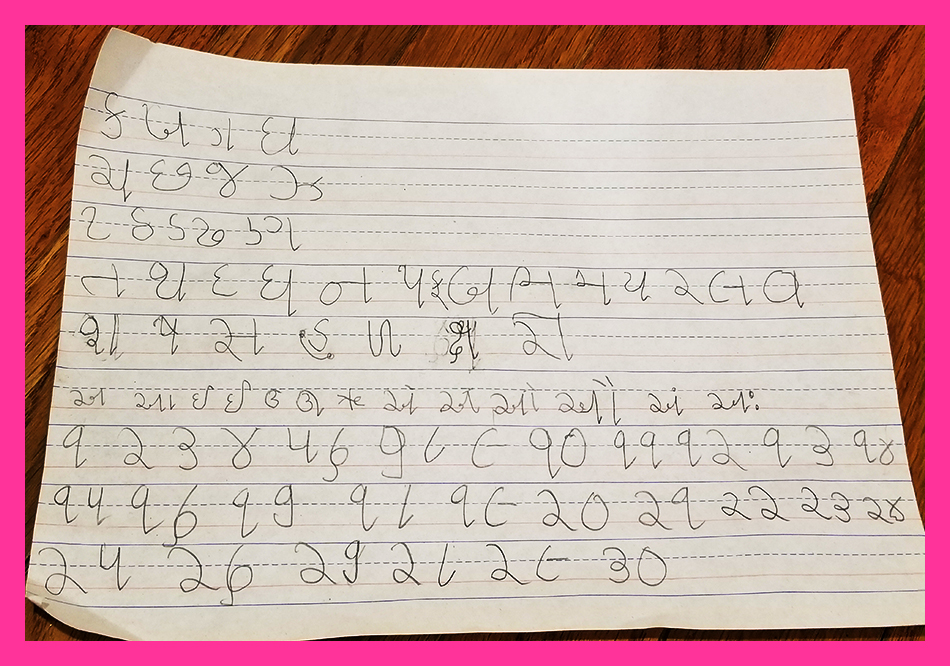 ક ખ ગ ઘ
ચ છ જ ઝ
ટ ઠ ડ ઢ ણ
ત થ દ ધ ન પ ફ બ ભ મ ય ર લ વ
શ ષ સ હ ળ ક્ષ જ્ઞ
અ આ ઇ ઈ ઉ ઊ ઋ એ ઐ ઓ ઔ અં અઃ
૧ ૨ ૩ ૪ ૫ ૬ ૭ ૮ ૯ ૧૦ ૧૧ ૧૨ ૧૩ ૧૪
૧૫ ૧૬ ૧૭ ૧૮ ૧૯ ૨૦ ૨૧ ૨૨ ૨૩ ૨૪
૨૫ ૨૬ ૨૭ ૨૮ ૨૯ ૩૦